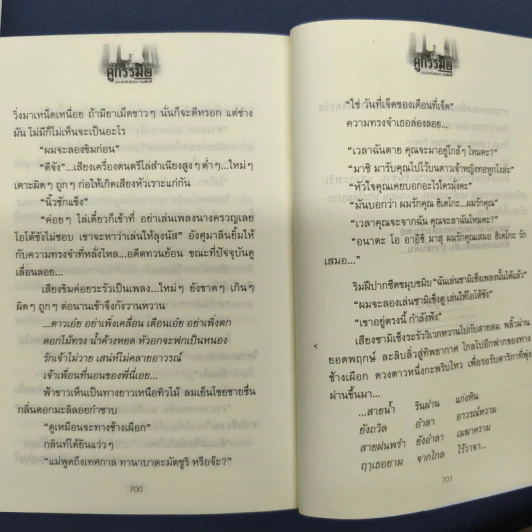 คู่กรรม ๒
วิ่งมาเหน็ดเหนื่อย ถ้ามียาเม็ดขาวๆ นั่นก็จะดีหรอก แต่ช่าง
มัน ไม่มีก็ไม่เห็นจะเป็นอะไร
“ผมจะลองขิมก่อน”
“ดีจัง”...เสียงเครื่องดนตรีไล่สำเนียงสูงๆ ต่ำๆ...ใหม่ๆ
เคาะผิดๆ ถูกๆ ก่อให้เกิดเสียงหัวเราะแก่กัน
“นิ้วชักแข็ง”
“ค่อยๆ ไล่เดี๋ยวก็เข้าที่ อย่าเล่นเพลงนางครวญเลย
โอโต้ซังไม่ชอบ เขาจะหาว่าเล่นให้ลุงนัส” อังศุมาลินยิ้มให้
กับความทรงจำที่หลั่งไหล...อดีตทวนย้อน ขณะที่ปัจจุบันดู
เลื่อนลอย...
เสียงขิมค่อยระรัวเป็นเพลง...ใหม่ๆ ยังขาดๆ เกินๆ
ผิดๆ ถูกๆ ต่อนานเข้าจึงกังวานหวาน
...ดาวเอ๋ย อย่าเพิ่งเคลื่อน เดือนเอ๋ย อย่าเพิ่งตก
ดอกไม้ทรง น้ำค้างหยด หัวอกจะฟกเป็นหนอง
รักเจ้าไม่วาย เสน่ห์ไม่คลายอาวรณ์
เจ้าเพื่อนที่นอนของพี่นี่เอย...
ฟ้าขาวเห็นเป็นทางยาวเหนือทิวไม้ ลมเย็นโชยชายชื่น
กลิ่นดอกมะลิลอยกำซาบ
“ดูเหมือนจะทางช้างเผือก”
กลินท์ได้ยินแว่วๆ
“แม่พูดถึงเทศกาล ทานาบาตะมัตซูริ หรือจ๊ะ?”
700
คู่กรรม ๒
“ใช่ วันที่เจ็ดของเดือนที่เจ็ด”
ความทรงจำเธอล่องลอย...
“เวลาฉันตาย คุณจะมาอยู่ใกล้ๆ ไหมคะ?”
“มาซิ มารับคุณไปไว้บนดาวเจ้าหญิงทอหูกไงล่ะ”
“หัวใจคุณเคยบอกอะไรใครมั่งคะ”
“มันบอกว่า ผมรักคุณ ฮิเดโกะ...ผมรักคุณ”
“เวลาคุณจะจากฉัน คุณจะลาฉันไหมคะ?”
“อนาตะ โอ อาอิชิ มาสุ ผมรักคุณเสมอ ฮิเดโกะ รัก
เสมอ...”
ริมฝีปากซีดขมุบขมิบ “ฉันเล่นซามิเซ็งเพลงนั้นได้แล้ว”
“ผมจะลองเล่นซามิเซ็งดู เล่นให้โอโต้ซัง”
“เขาอยู่ตรงนี้ กำลังฟัง”
เสียงซามิเซ็งระรัววิเวกหวานไปกับสายลม พลิ้วผ่าน
ยอดพฤกษ์ ละลิบลิ่วสู่ทิพยากาศ ไกลไปอีกฟากของทาง
ช้างเผือก ดวงดาวหนึ่งกะพริบไหว เพื่อรอรับดาริกาที่พุ่ง
ผ่านขึ้นมา...
...สายน้ำ รินผ่าน แก่งหิน
ยังถวิล อำลา อาวรณ์หวาม
สายฝนพรำ ยังอำลา เมฆาคราม
ฤๅเธอยาม จากไกล ไร้วาจา...
701